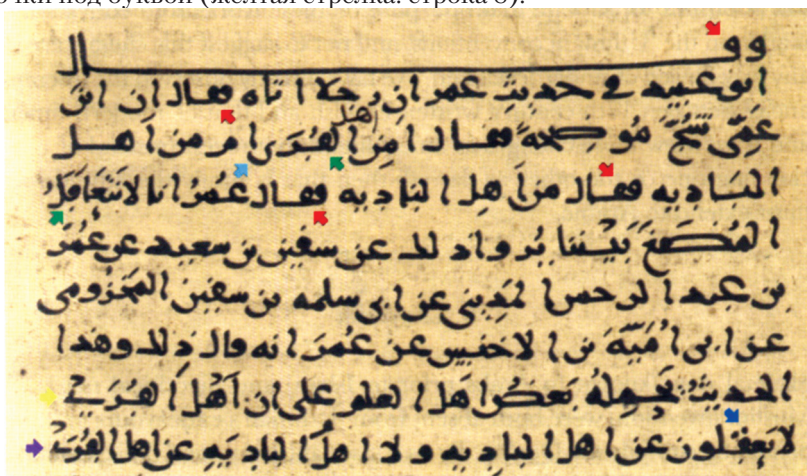 очки под буквой (желтая стрелка: строка 8).
وقال
ابو عبيد في حديث عمر ان رجلا اتاه فقال ان ابن
عمى شُجّ مُوضحه فقال امن اهل القُرَى ام من اهل
الباديه فقال من اهل الباديه فقال عُمرُ انا لا نتعَاقلُ
المُضَغَ بَيْننا يُروا ذلك عن سفين بن سعيد عن عُمَرَ
بن عبد الرحمن المدينى عن ابى سلمه بن سفين المخزومى
عن ابى اُمَيَّه بن الاخنس عن عُمَرَ انه قال ذلك وهذا
الحديثُ يَحمِلهُ بَعضُ اهل العلم على ان اَهْلَ القُرَى
لا يَعقلون عن اهل الباديه ولا اهلُ الباديَه عن اهل القُرَى